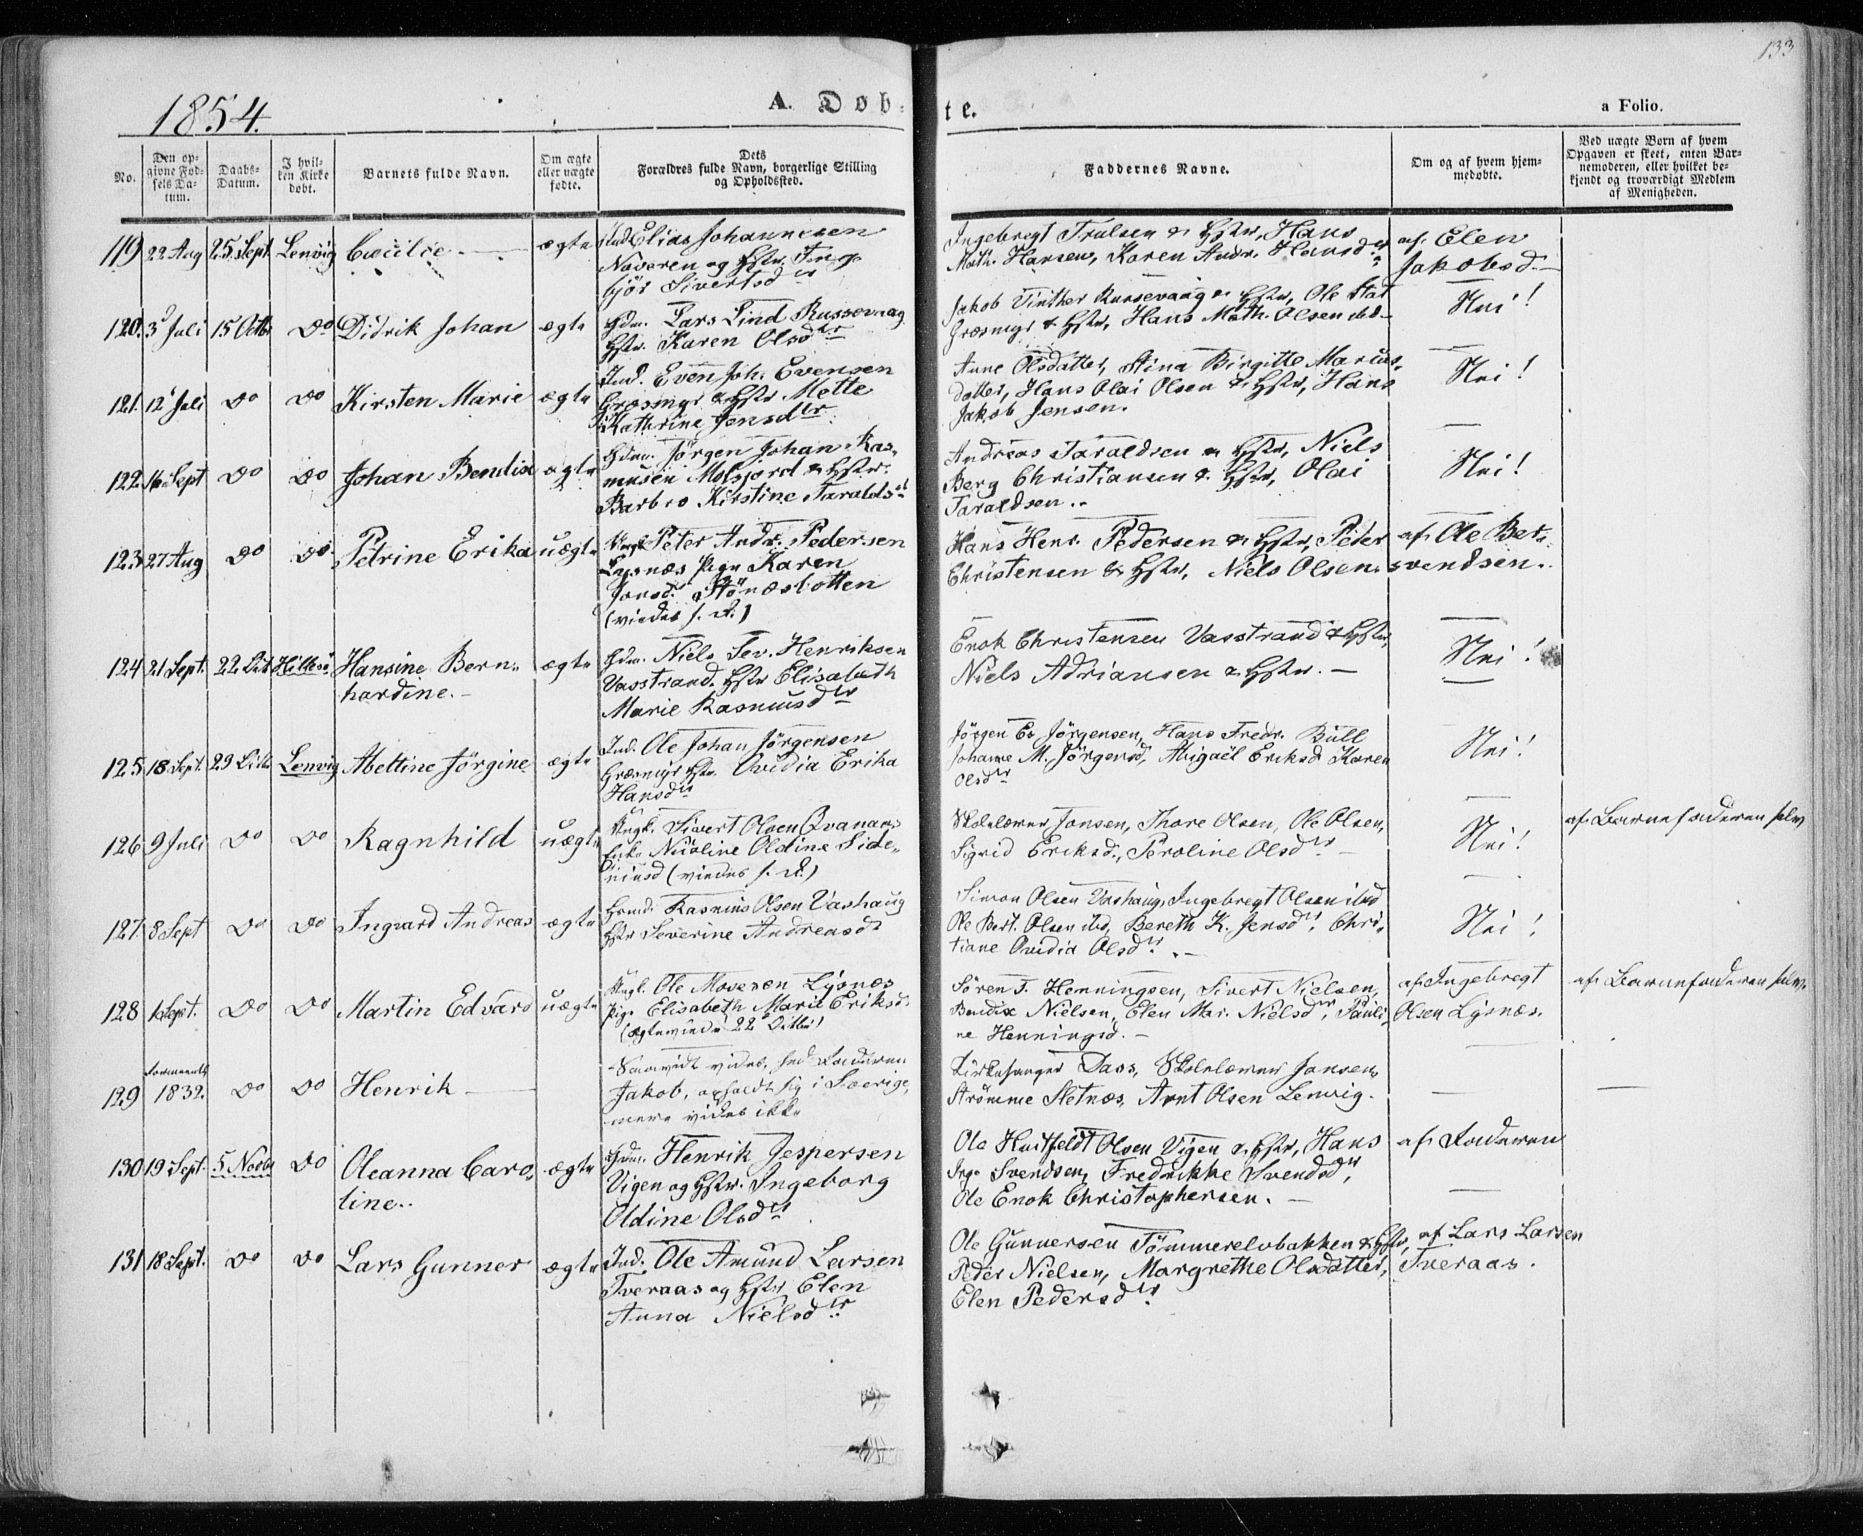 133
1854.
A. Døb-
te.
a Folio.
No.
Den op-
givne Fød-
sels Da-
tum.
Daabs-
Datum.
I hvil-
ken Kirke
døbt.
Barnets fulde Navn.
Om ægte
eller uægte
fødte.
Dets
Forældres fulde Navn, borgerlige Stilling
og Opholdssted.
Faddernes Navne.
Om og af hvem hjem-
medøbte.
Ved uægte Børn af hvem
Opgaven er skeet, enten Bar-
nemoderen, eller hvilket be-
kjendt og troværdigt Medlem
af Menigheden.
119 22 Aug 25 Sept. Lenvig Cæcilie ægte Ind. Elias Johannesen
Naveren og Hstr. Inge-
björ Sivertsdr
Ingebregt Trulsen & Hstr, Hans
Math. Hansen, Karen Andr. Hansdr
af Elen
Jakobsd.
120. 3 Juli 15 Octbr do Didrik Johan ægte Gdm. Lars Lind Russevaag
Hstr. Karen Olsdtr
Jakob Vinther Russevaag & Hstr, Ole
Græsmyr & Hstr, Hans Math. Olsen ibd
Nei!
121. 12 Juli do do Kirsten Marie ægte Ind. Even Joh. Evensen
Græsmyr & Hstr Mette
Kathrine Jensdtr.
Anne Olsdatter, Stina Birgitte Marcus-
datter, Hans Olai Olsen & Hstr, Hans
Jakob Jensen.
Nei!
122. 16 Sept do do Johan Bendix ægte Gdm. Jørgen Johan Ras-
musen Molsjord & Hstr.
Barbro Kirstine Taraldsd
Andreas Taraldsen & Hstr, Niels
Berg Christiansen & Hstr, Olai
Taraldsen.
Nei!
123. 27 Aug do do Petrine Erika uægte Ungk. Peter Andr. Pedersen
Lysnæs Pige Karen
Jonsd. Stönæsbotten
(viedes s. D.)
Hans Henr. Pedersen & Hstr, Peder
Christensen & Hstr, Niels Olsen.
af Ole Bet.
Svendsen.
124 21 Sept. 22 Dito Hillesö Hansine Bern-
hardine. ægte Gdm. Niels Sev. Henriksen
Vasstrand. Hstr Elisabeth
Marie Rasmusdr
Enok Christensen Vasstrand & Hstr,
Niels Adriansen & Hstr.
Nei!
125. 18 Sept. 29 Dito Lenvig Abettine Jørgine ægte Ind. Ole Johan Jørgensen
Græsmyr Hstr. Ovidia Erika
Hansdr
Jørgen Er. Jørgensen, Hans Fredr. Bull
Johanne M. Jørgensd, Abigael Eriksd Karen
Olsdtr
Nei!
126. 9 Juli do do Ragnhild uægte Ungk. Sivert Olsen Qvanan-
Enke Nicoline Oldine Side-
niusd (viedes s. D.)
Skolelærer Jonsen, Thore Olsen, Ole Olsen,
Sigrid Eriksd., Peroline Olsdr
Nei!
af Barnefaderen selv
127. 8 Sept do do Ingvard Andreas ægte Gaardm. Rasmus Olsen Vashaug
Hstr Severine Andreasd
Simon Olsen Vashaug, Ingebregt Olsen ibd
Ole Bert. Olsen ibd, Bereth K. Jensdr, Chri-
tiane Ovidia Olsdr.
Nei!
128 1 Sept. do do Martin Edvard uægte Ungk. Ole Movesen Lysnæs
Pige Elisabeth Marie Eriksd.
(ægteviede 22 Octbr)
Søren T. Henningsen, Sivert Nielsen,
Bendix Nielsen, Elen Mar. Nielsdr, Pauli-
ne Henningsd.
af Ingebregt
Olsen Lysnæs.
af Barnefaderen selv.
129 1832. do do Henrik
Saavidt vides, hed Faderen
Jakob, opholdt sig i Sverige,
mere vides ikke
Kirkesanger Dass, Skolelærer Jonsen,
Strömme Stetnæs, Arnt Olsen Lenvig.
130 19 Sept. 5 Novbr do Oleanna Caro-
line.. ægte Gdm. Henrik Jespersen
Vigen og Hstr. Ingeborg
Oldine Olsdr
Ole Huitfeldt Olsen Vigen & Hstr, Hans
Inge Svendsen, Fredrikke Svendsdr,
Ole Enok Christophersen.
af Faderen
131 18 Sept. do do Lars Gunner ægte Ind. Ole Amund Larsen
Tveraas og Hstr Elen
Anna Nielsdr.
Ole Gunnersen Tømmerelvbakken & Hstr,
Peder Nielsen, Margrethe Olsdatter,
Elen Pedersdr
af Lars Larsen
Tveraas.